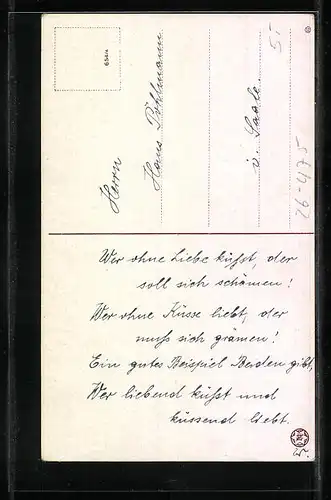 65414
Herrn
Hans Pöhlmann.
i. Saale.
5.-
26-475
Wer ohne Liebe küsst, der
soll sich schämen!
Wer ohne Küsse liebt, der
muss sich grämen!
Ein gutes Beispiel Beiden gibt,
Wer liebend küsst und
küssend liebt.